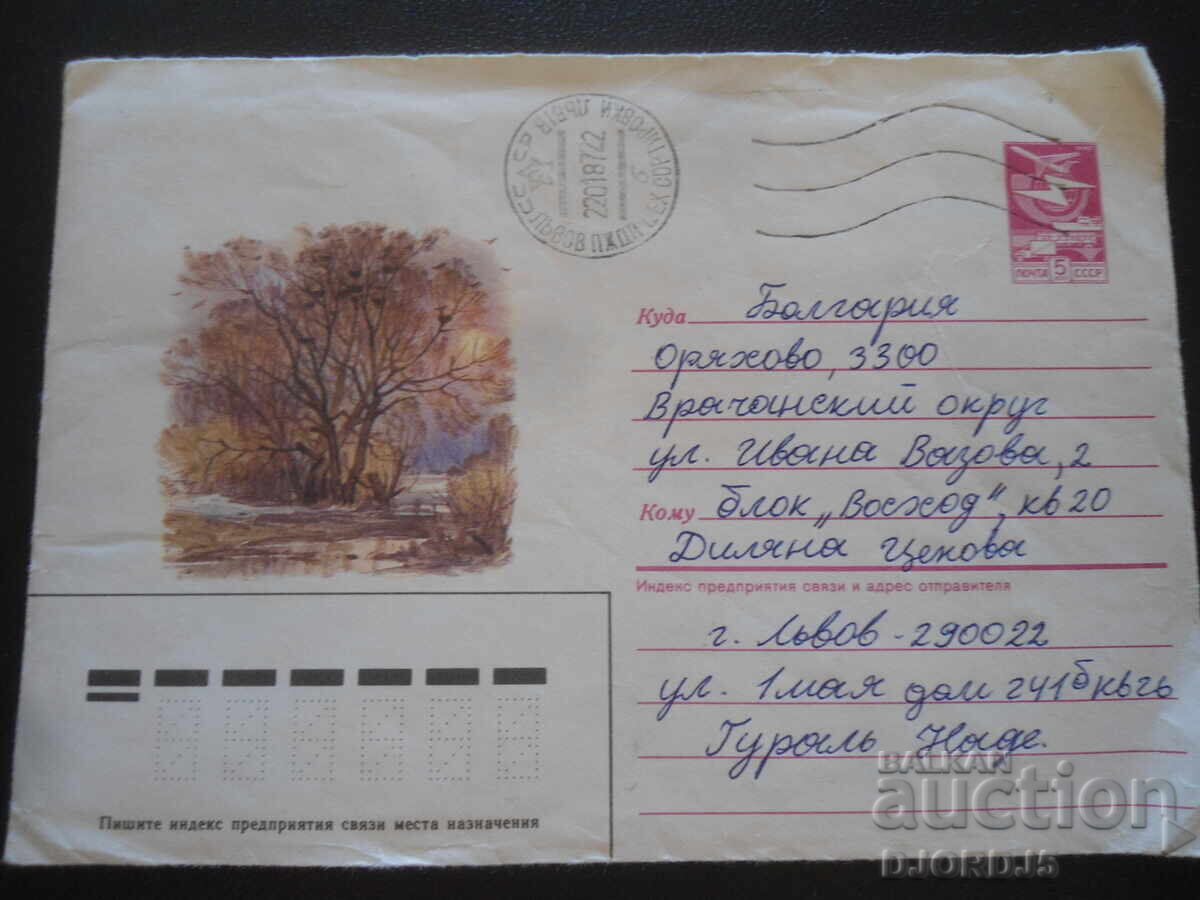 220187 22
ПОЧТА 5 СССР
Куда Болгария
Оряхово, 3300
Врачанский округ
ул. Ивана Вазова, 2
Кому блок „Восход", кв 20
Диляна Ценова
Индекс предприятия связи и адрес отправителя
г. Львов - 290022
ул. 1 мая дом 241б
Гураль Наде.
Пишите индекс предприятия связи места назначения
BALKAN
auction
DJORDJ5